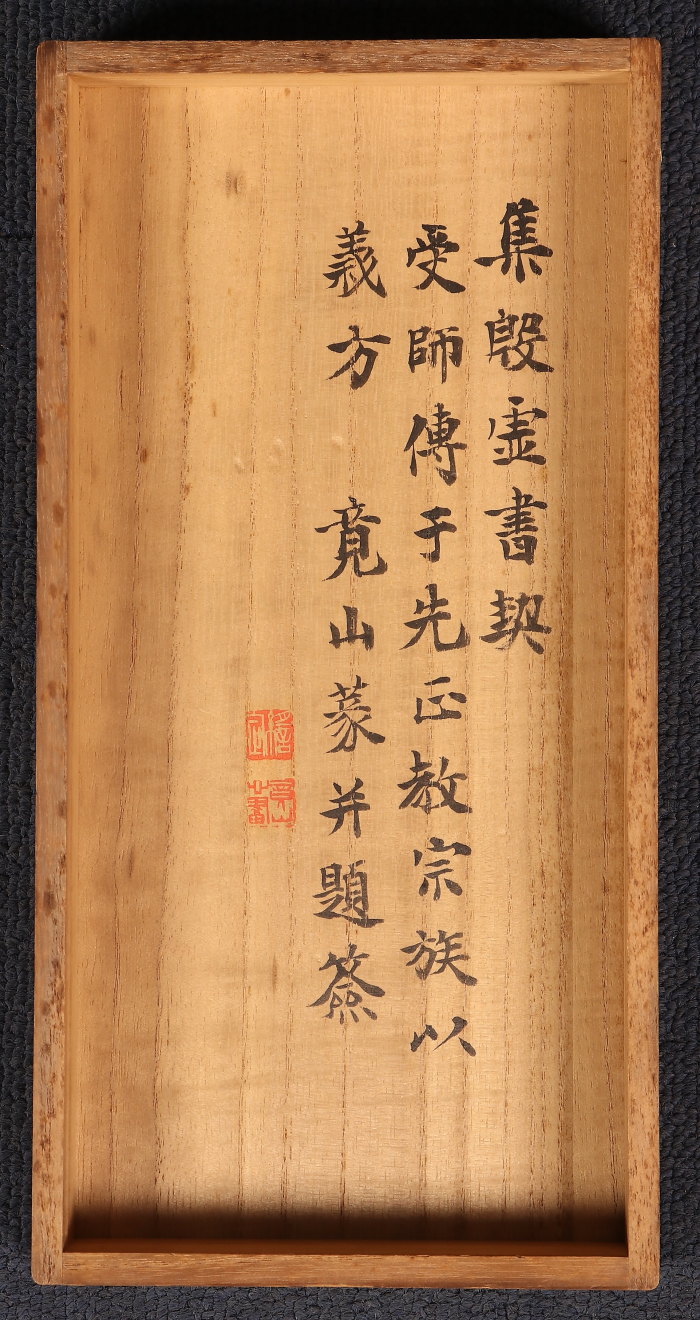 集殷虚書契
受師傳于先正教宗族以
義方　竟山篆并題簽